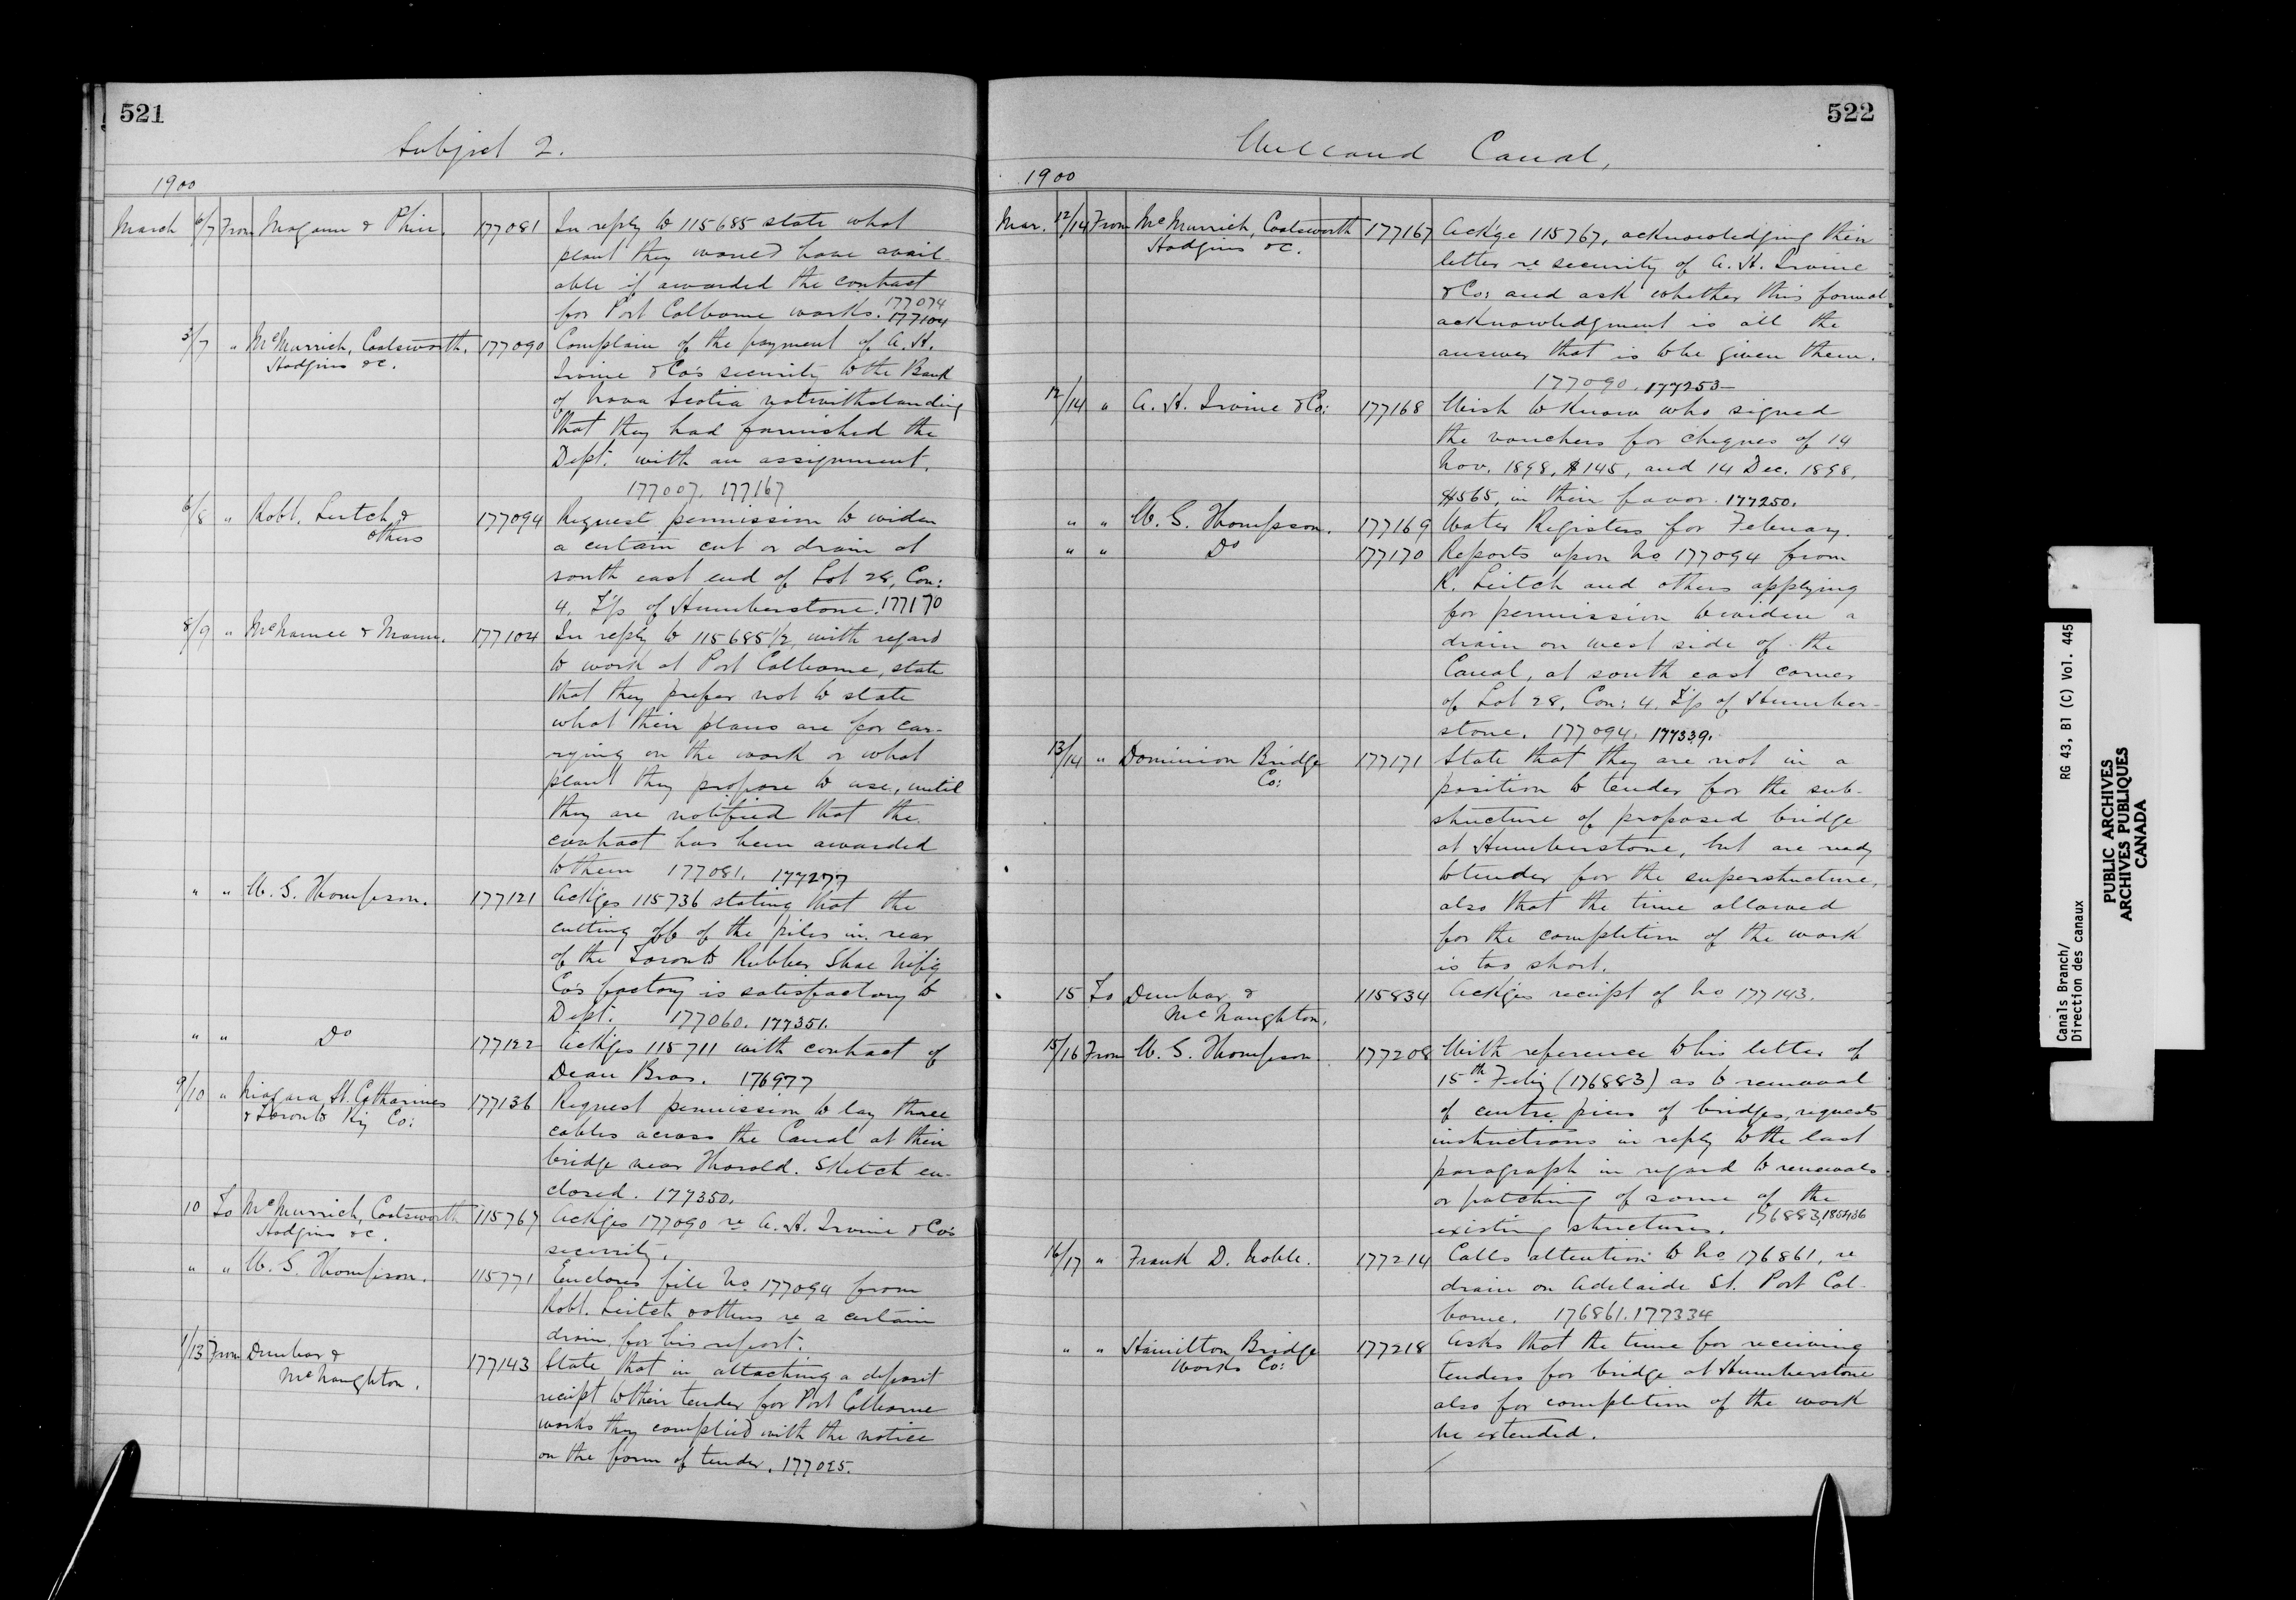 521
Subject 2.
1900
March 6/7 From Magann & Phin. 177081 In reply to 115685 state what
plant they would have avail-
able if awarded the contract
for Port Colborne works. 177074
177104
5/7 " McMurrich, Coatsworth, 177090 Complain of the payment of A. H.
Hodgins &c. Irvine & Co's security to the Bank
of Nova Scotia notwithstanding
that they had furnished the
Dept. with an assignment.
177007. 177167
6/8 " Robt. Leitch & 177094 Request permission to widen
others a certain cut or drain at
south east end of Lot 28, Con:
4. T'p of Humberstone. 177170
8/9 " McNamee & Mann. 177104 In reply to 115685½, with regard
to work at Port Colborne, state
that they prefer not to state
what their plans are for car-
rying on the work or what
plant they propose to use, until
they are notified that the
contract has been awarded
to them 177081. 177277
" " W. G. Thompson. 177121 Ack'ges 115736 stating that the
cutting off of the piles in rear
of the Toronto Rubber Shoe M'f'g
Co's factory is satisfactory to
Dept. 177060. 177351.
" " Do 177122 Ack'ges 115711 with contract of
Dean Bros. 176977
9/10 " Niagara St. Catharines 177136 Request permission to lay three
& Toronto Ry Co: cables across the Canal at their
bridge near Thorold. Sketch en-
closed. 177350.
10 To McMurrich, Coatsworth 115767 Ack'ges 177090 re A. H. Irvine & Co's
Hodgins &c. security.
" " W. G. Thompson. 115771 Encloses file No 177094 from
Robt. Leitch & others re a certain
drain for his report.
1/13 From Dunbar & 177143 State that in attaching a deposit
McNaughton. receipt to their tender for Port Colborne
works they complied with the notice
on the form of tender. 177025.
522
Welland Canal,
1900
Mar. 12/14 From McMurrich, Coatsworth 177167 Ack'ge 115767, acknowledging their
Hodgins &c. letter re security of A. H. Irvine
& Co: and ask whether this formal
acknowledgment is all the
answer that is to be given them.
177090. 177253
12/14 " A. H. Irvine & Co: 177168 Wish to know who signed
the vouchers for cheques of 14
Nov. 1898, $145, and 14 Dec. 1898,
$565, in their favor. 177250.
" " W. G. Thompson. 177169 Water Registers for February.
" " Do 177170 Reports upon No 177094 from
R. Leitch and others applying
for permission to widen a
drain on west side of the
Canal, at south east corner
of Lot 28, Con: 4. T'p of Humber-
stone. 177094. 177339.
13/14 " Dominion Bridge 177171 State that they are not in a
Co: position to tender for the sub-
structure of proposed bridge
at Humberstone, but are ready
to tender for the superstructure,
also that the time allowed
for the completion of the work
is too short.
15 To Dunbar & 115834 Ack'ges receipt of No 177143.
McNaughton.
15/16 From W. G. Thompson 177208 With reference to his letter of
15th Feb'y (176883) as to removal
of centre piers of bridges, requests
instructions in reply to the last
paragraph in regard to renewals
or patching of some of the
existing structures. 176883,
16/17 " Frank D. Noble. 177214 Calls attention to No 176861, re
drain on Adelaide St. Port Col-
borne. 176861. 177334
" " Hamilton Bridge 177218 Asks that the time for receiving
Works Co: tenders for bridge at Humberstone
also for completion of the work
be extended.
Canals Branch/ RG 43, B1 (C) Vol. 445
Direction des canaux
PUBLIC ARCHIVES
ARCHIVES PUBLIQUES
CANADA